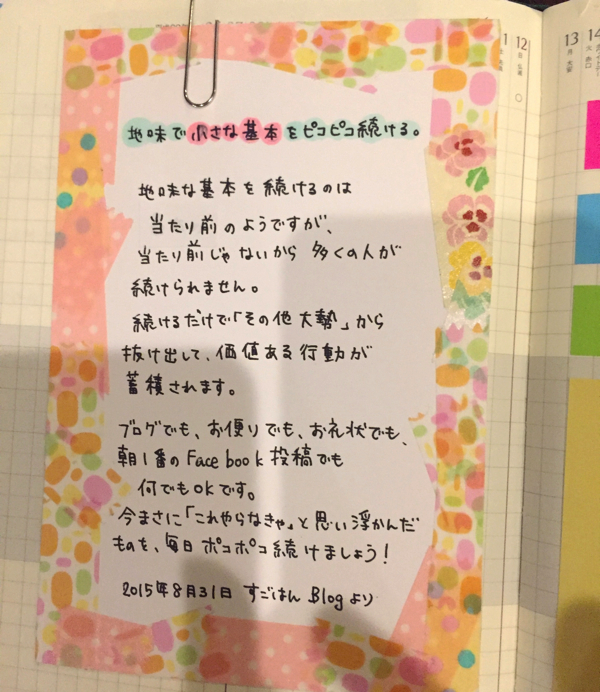 地味で小さな基本をピコピコ続ける。
地味な基本を続けるのは
当たり前のようですが、
当たり前じゃないから 多くの人が
続けられません。
続けるだけで「その他大勢」から
抜け出して、価値ある行動が
蓄積されます。
ブログでも、お便りでも、お礼状でも、
朝1番のFacebook投稿でも
何でもOKです。
今まさに「これやらなきゃ」と思い浮かんだ
ものを、毎日ポコポコ続けましょう!
2015年8月31日 すごはん Blogより
1
12
13
月
14
火